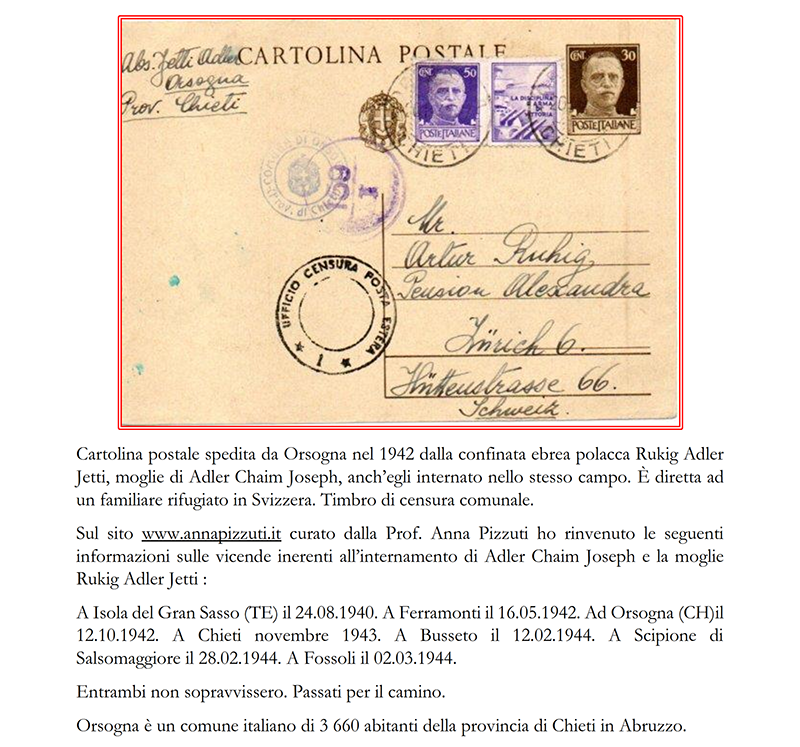 Abs. Jetti Adler
Orsogna
Prov. Chieti
CARTOLINA POSTALE
CENT 50
POSTE ITALIANE
LA DISCIPLINA
È ARMA
DI
VITTORIA
CENT 30
POSTE ITALIANE
CHIETI
CHIETI
COMUNE DI
Prov. di Chieti
I
UFFICIO CENSURA POSTA ESTERA
1
Mr.
Artur Rukig
Pension Alexandra
Zürich 6.
Hüttenstrasse 66.
Schweiz.
Cartolina postale spedita da Orsogna nel 1942 dalla confinata ebrea polacca Rukig Adler
Jetti, moglie di Adler Chaim Joseph, anch’egli internato nello stesso campo. È diretta ad
un familiare rifugiato in Svizzera. Timbro di censura comunale.
Sul sito www.annapizzuti.it curato dalla Prof. Anna Pizzuti ho rinvenuto le seguenti
informazioni sulle vicende inerenti all’internamento di Adler Chaim Joseph e la moglie
Rukig Adler Jetti :
A Isola del Gran Sasso (TE) il 24.08.1940. A Ferramonti il 16.05.1942. Ad Orsogna (CH)il
12.10.1942. A Chieti novembre 1943. A Busseto il 12.02.1944. A Scipione di
Salsomaggiore il 28.02.1944. A Fossoli il 02.03.1944.
Entrambi non sopravvissero. Passati per il camino.
Orsogna è un comune italiano di 3 660 abitanti della provincia di Chieti in Abruzzo.